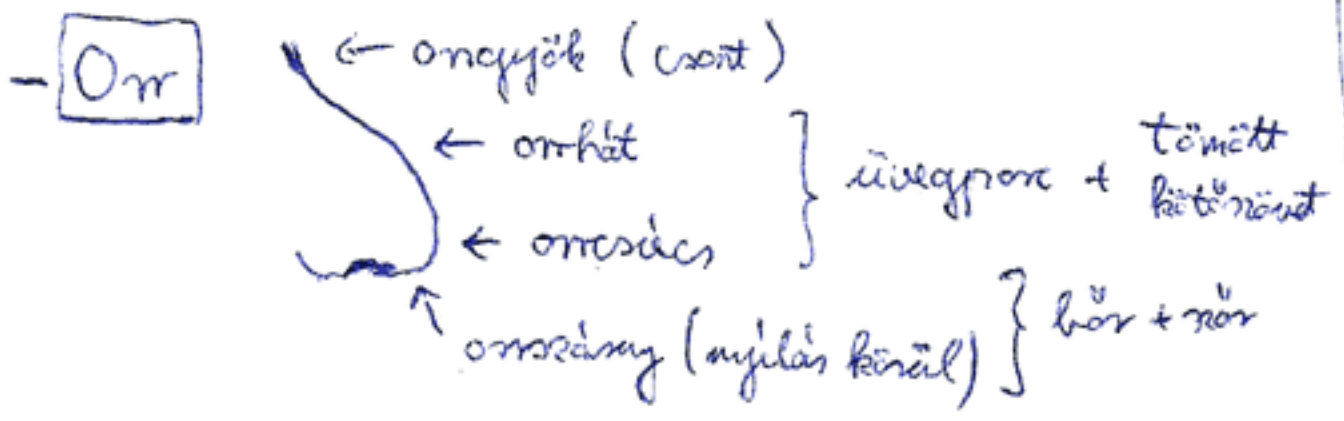 - Orr
← orrgyök (csont)
← orrhát
← orrcsúcs
} üvegporc + tömött
kötőszövet
orrszárny (nyílás körül) } bőr + szőr